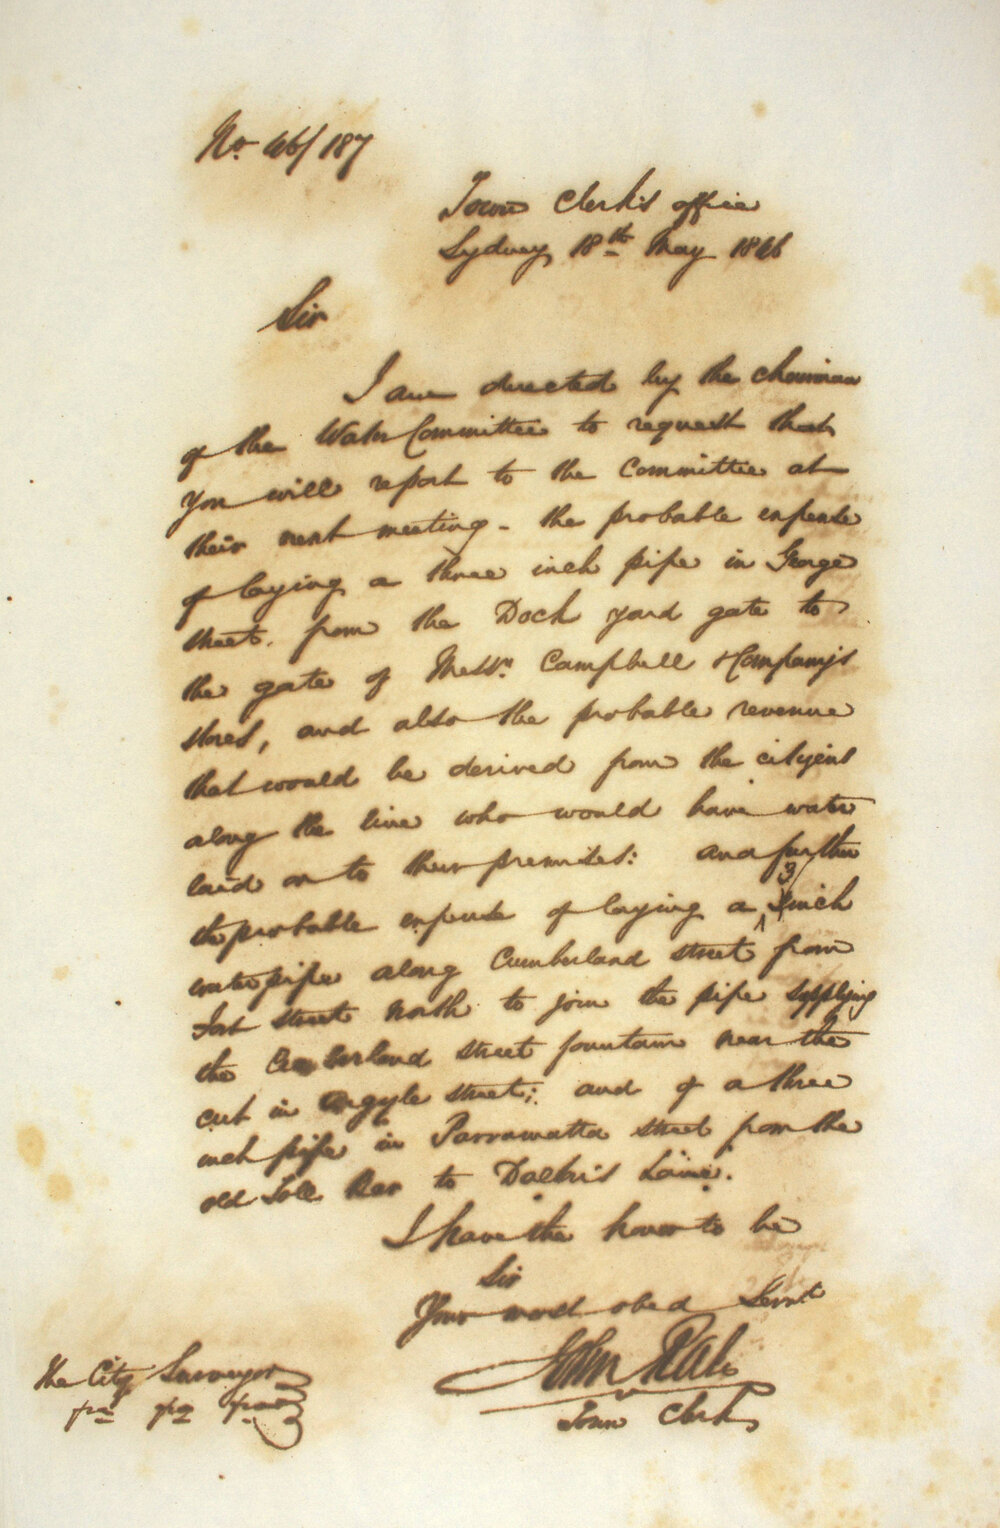 No. 46/187
Town Clerk's office
Sydney 18th May 1846
Sir
I am directed by the Chairman
of the Water Committee to request that
you will report to the Committee at
their next meeting - the probable expense
of laying a three inch pipe in George
street. from the Dock yard gate to
the gate of Messrs. Campbell & Company's
stores, and also the probable revenue
that would be derived from the citizens
along the line who would have water
laid on to their premises: and further
the probable expense of laying a 3 inch
water pipe along Cumberland street from
Fort street North to join the pipe supplying
the Cumberland street fountain near the
cut in Argyle street; and of a three
inch pipe in Parramatta street from the
old Toll Bar to Lane.
I have the honor to be
Sir
Your most obed Servt
John Rae
Town Clerk
The City Surveyor